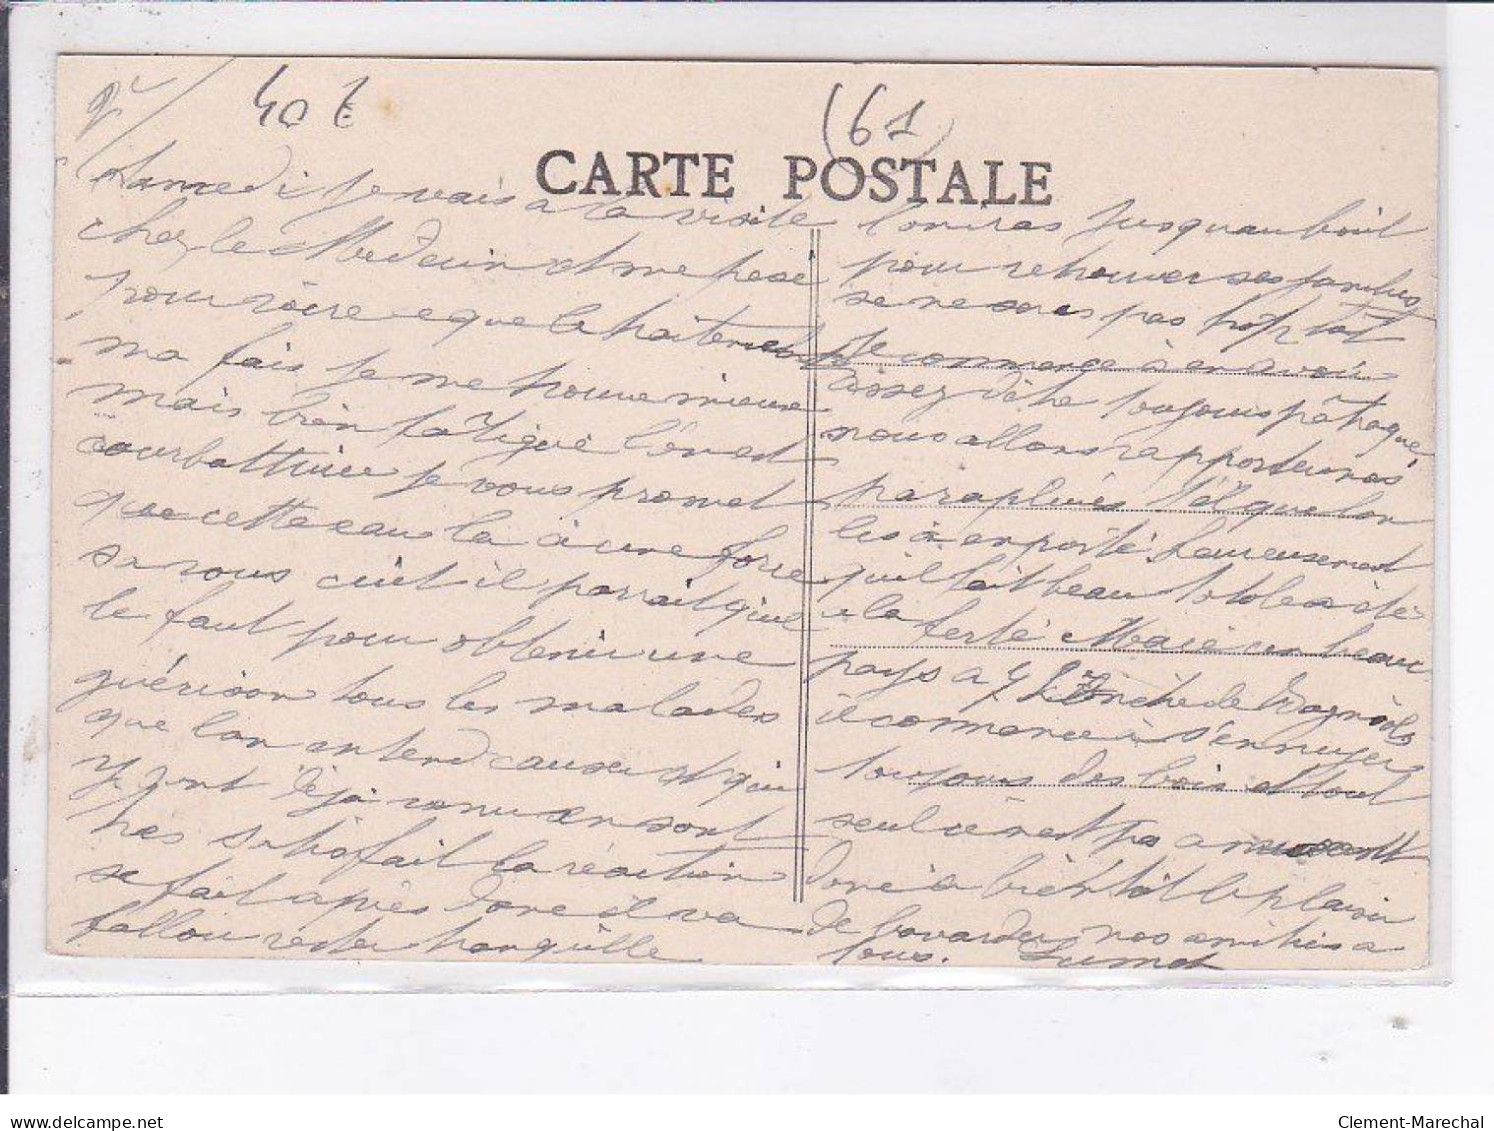 2e/
40 €
(61)
CARTE POSTALE
Samedi je vais a la visite
chez le Medecin et me pese
pour voire ce que le traitement
ma fais je me trouve mieux
mais bien fatigué l'on est
courbatturé je vous promet
que cette eau la à une force
si vous ciet il parrait qu'il
le faut pour obtenir une
guérison tous les malades
que l'on entend causer et qui
y sont déjà venu en sont
très satisfait la réaction
se fait après donc il va
falloir rester tranquille
l'on iras jusqu'au bout
pour retrouver ses familles
se ne seras pas trop tot
je commence à en avoir
assez d'être toujours
nous allons rapporter nos
parapluies que l'on
les à emporté heureusement
qu'il fait beau
a la ferté Macé un beau
pays a de Bagnoles
il commence à s'ennuyer
toujours des bois et tout
seul ce n'est pas amusant
donc à bientôt le plaisir
de bavarder nos amitiés a
tous.
delcampe.net
Clement-Marechal